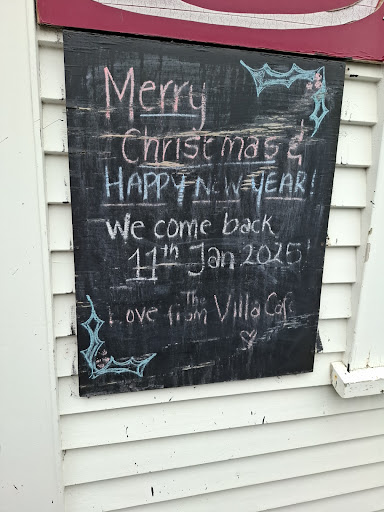 Merry
Christmas &
HAPPY NEW YEAR!
We come back
11th Jan 2025
Love from The Villa Café